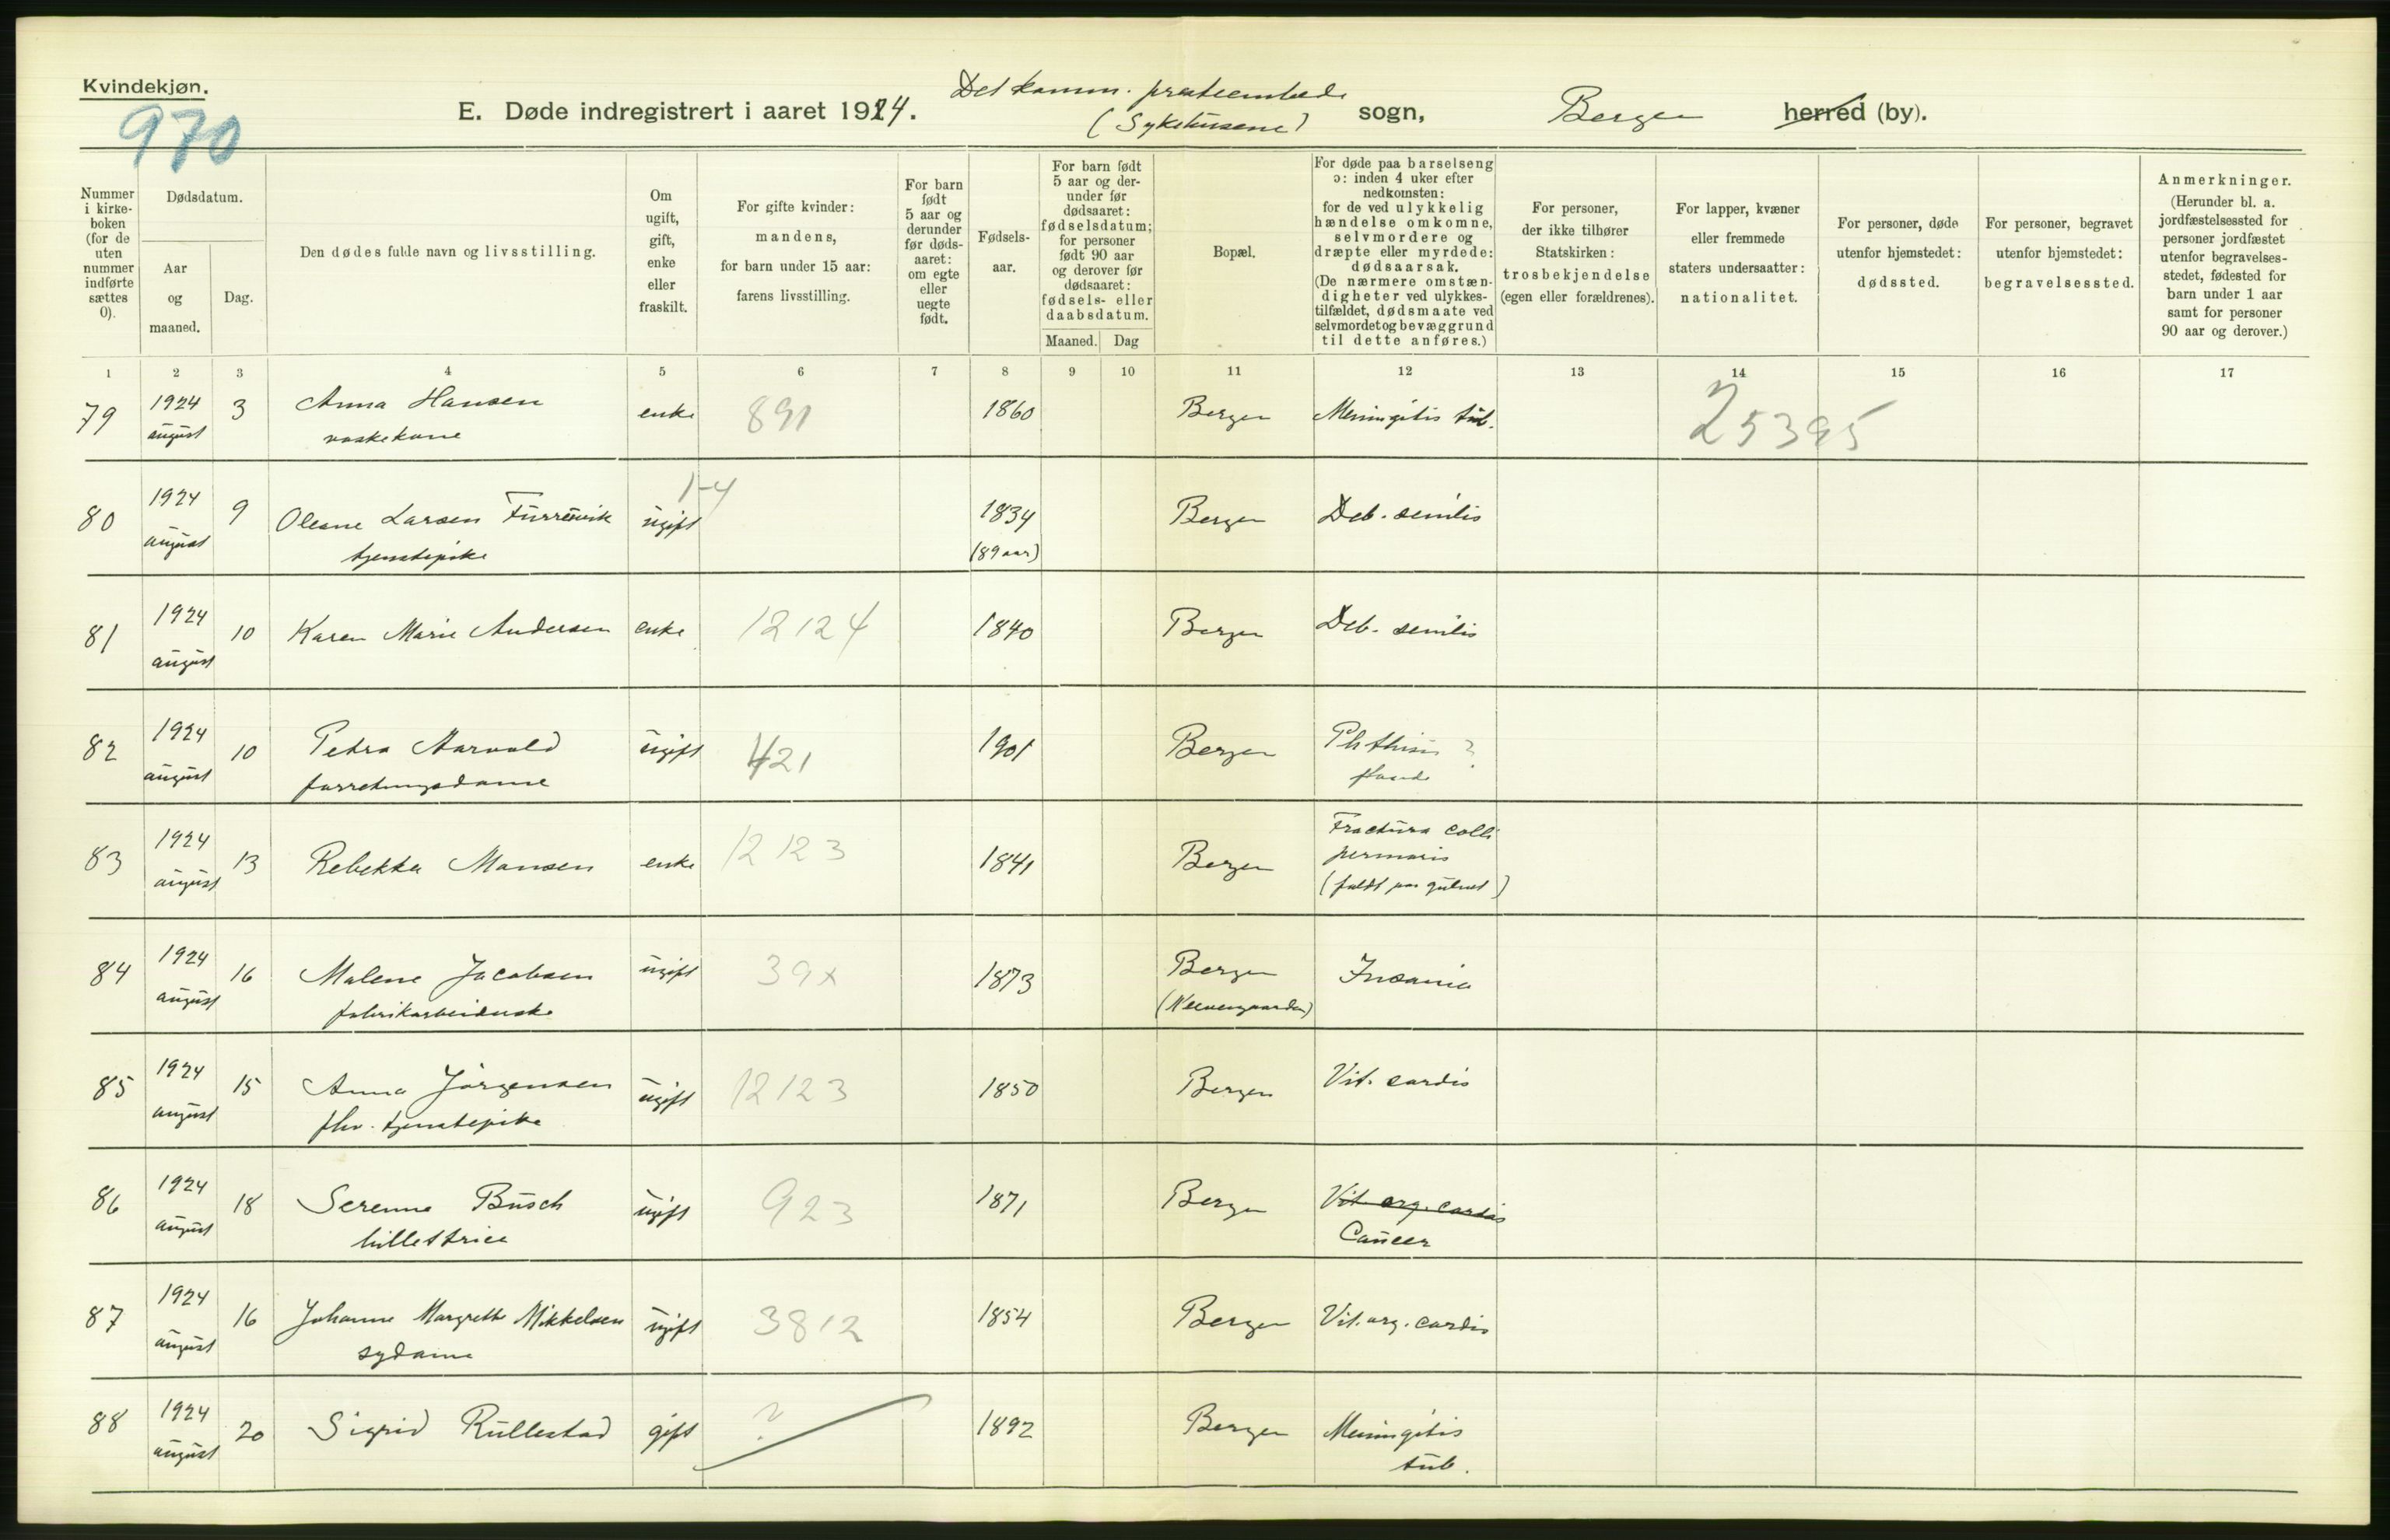 Kvindekjøn.
970
E. Døde indregistrert i aaret 1924.
Det komm. presteembede
(Sykehusene)
sogn,
Bergen
herred (by).
Nummer i kirke- boken (for de uten nummer indførte sættes 0).
Dødsdatum.
Aar og maaned.
Dag.
Den dødes fulde navn og livsstilling.
Om ugift, gift, enke eller fraskilt.
For gifte kvinder: mandens, for barn under 15 aar: farens livsstilling.
For barn født 5 aar og derunder før døds- aaret: om egte eller uegte født.
Fødsels- aar.
For barn født 5 aar og der- under før dødsaaret: fødselsdatum; for personer født 90 aar og derover før dødsaaret: fødsels- eller daabsdatum.
Maaned. Dag
Bopæl.
For døde paa barselseng ɔ: inden 4 uker efter nedkomsten: for de ved ulykkelig hændelse omkomne, selvmordere og dræpte eller myrdede: dødsaarsak. (De nærmere omstæn- digheter ved ulykkes- tilfældet, dødsmaate ved selvmordet og bevæggrund til dette anføres.)
For personer, der ikke tilhører Statskirken: trosbekjendelse (egen eller forældrenes).
For lapper, kvæner eller fremmede staters undersaatter: nationalitet.
For personer, døde utenfor hjemstedet: dødssted.
For personer, begravet utenfor hjemstedet: begravelsessted.
Anmerkninger. (Herunder bl. a. jordfæstelsessted for personer jordfæstet utenfor begravelses- stedet, fødested for barn under 1 aar samt for personer 90 aar og derover.)
1 2 3 4 5 6 7 8 9 10 11 12 13 14 15 16 17
79 1924 august 3 Anna Hansen enke 891 1860 Bergen Meningitis tub. 25395
vaskekone
80 1924 august 9 Oleane Larsen Furrevik ugift 1-4 1834 Bergen Deb. senilis
tjenestepike (89 aar)
81 1924 august 10 Karen Marie Andersen enke 12124 1840 Bergen Deb. senilis
82 1924 august 10 Petra Aarvold ugift 421 1901 Bergen Phthisis ?
forretningsdame
83 1924 august 13 Rebekka Monsen enke 12123 1841 Bergen Fractura colli
(faldt paa gulvet)
84 1924 august 16 Malene Jacobsen ugift 39x 1873 Bergen Insania
fabrikarbeiderske (Neevengaarden)
85 1924 august 15 Anna Jörgensen ugift 12123 1850 Bergen Vit. cordis
fhv. tjenestepike
86 1924 august 18 Serenne Busch ugift 923 1871 Bergen Vit. org. cordis
Cancer
87 1924 august 16 Johanne Margrethe Mikkelsen ugift 3812 1854 Bergen Vit. org. cordis
sydame
88 1924 august 20 Sigrid Rullestad gift ? 1892 Bergen Meningitis
tub.